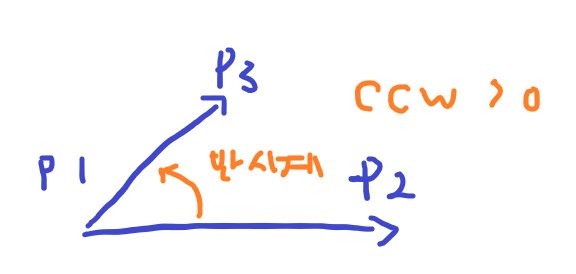 P3
CCW > 0
P1
반시계
P2